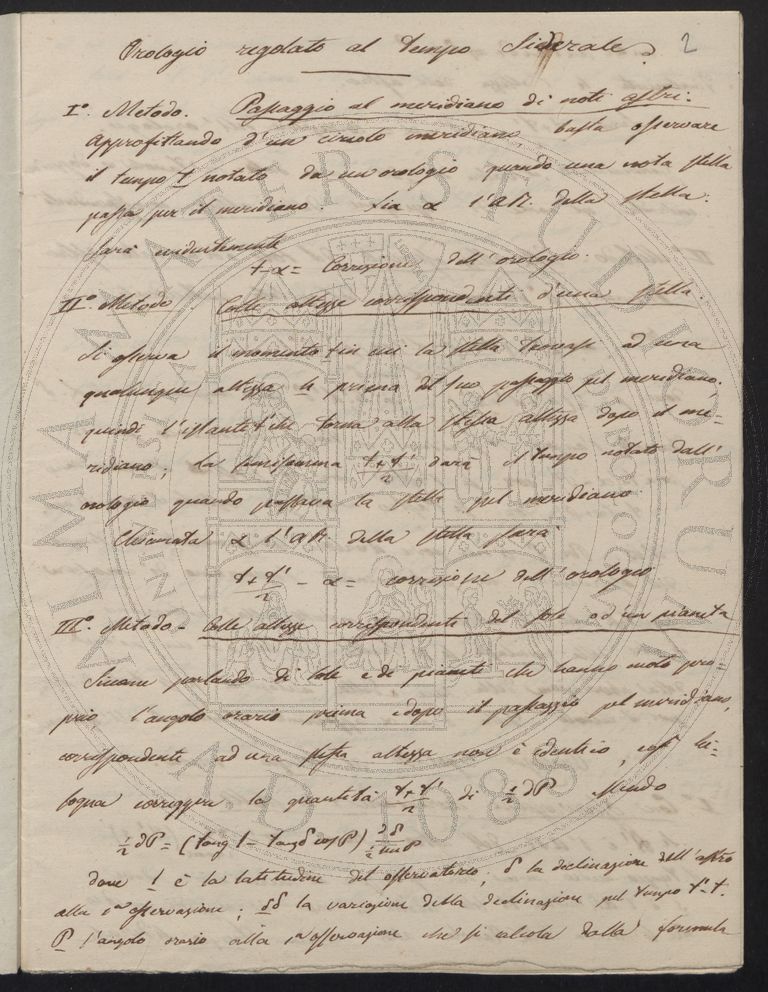 Orologio regolato al tempo Siderale. 2
I.° Metodo. Passaggio al meridiano di noti astri.
Approfittando d'un circolo meridiano basta osservare
il tempo t notato da un orologio quando una nota stella
passa per il meridiano. Sia α l'AR. della stella.
Sarà evidentemente
t-α = Correzione dell'orologio.
II.° Metodo. Colle altezze corrispondenti d'una stella.
Si osserva il momento t in cui la stella trovasi ad una
qualunque altezza a prima del suo passaggio pel meridiano,
quindi l'istante t' che torna alla stessa altezza dopo il me=
ridiano; la semisomma t+t'/2 darà il tempo notato dall'
orologio quando passava la stella pel meridiano.
Chiamata α l'AR della stella sarà
t+t'/2 - α = correzione dell'orologio
III.° Metodo - Colle altezze corrispondenti del sole od un pianeta
Siccome parlando di sole e di pianeti che hanno moto pro=
prio l'angolo orario prima e dopo il passaggio pel meridiano,
corrispondente ad una stessa altezza non è identico, così bi=
sogna correggere la quantità t+t'/2 di ½dP essendo
½dP = (tang l - tangδ cosP) ½dδ/sinP
dove l è la latitudine del osservatorio; δ la declinazione dell'astro
alla 1ª osservazione; dδ la variazione della declinazione pel tempo t'-t.
P l'angolo orario alla 1ª osservazione che si calcola dalla formula
ALMA MATER STUDIORUM
A.D. 1088